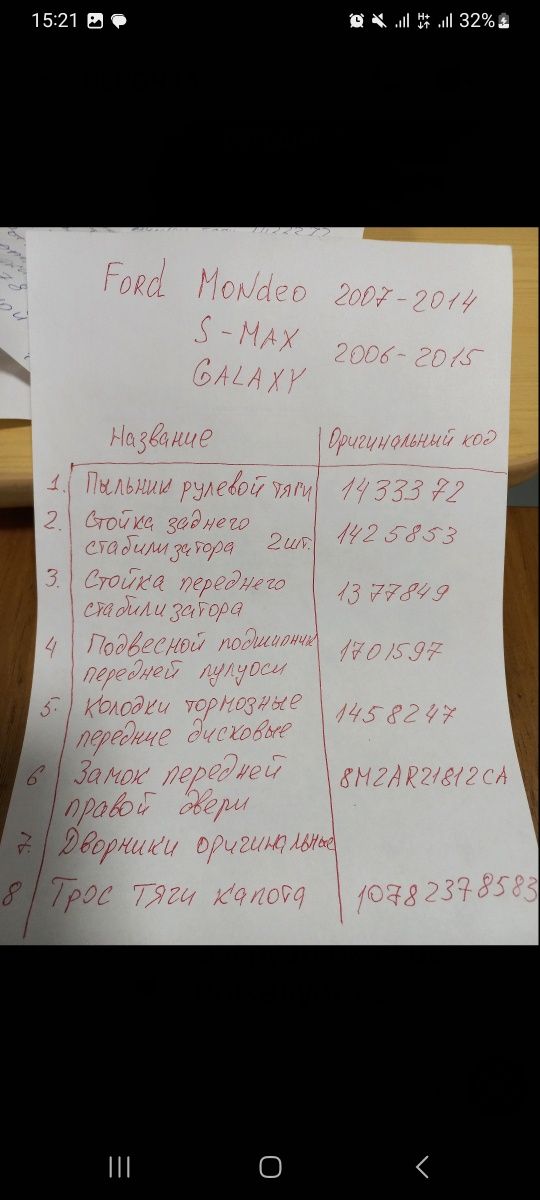 15:21
32%
Ford Mondeo 2007-2014
S-MAX
2006-2015
GALAXY
Название Оригинальный код
1. Пыльник рулевой тяги 1433372
2. Стойка заднего
стабилизатора 2шт. 1425853
3. Стойка переднего
стабилизатора 1377849
4 Подвесной подшипник
передней пулуоси 1701597
5. Колодки тормозные
передние дисковые 1458247
6 Замок передней
правой двери 8M2AR21812CA
7. Дворники оригинальные
8 Трос тяги капота 10782378583